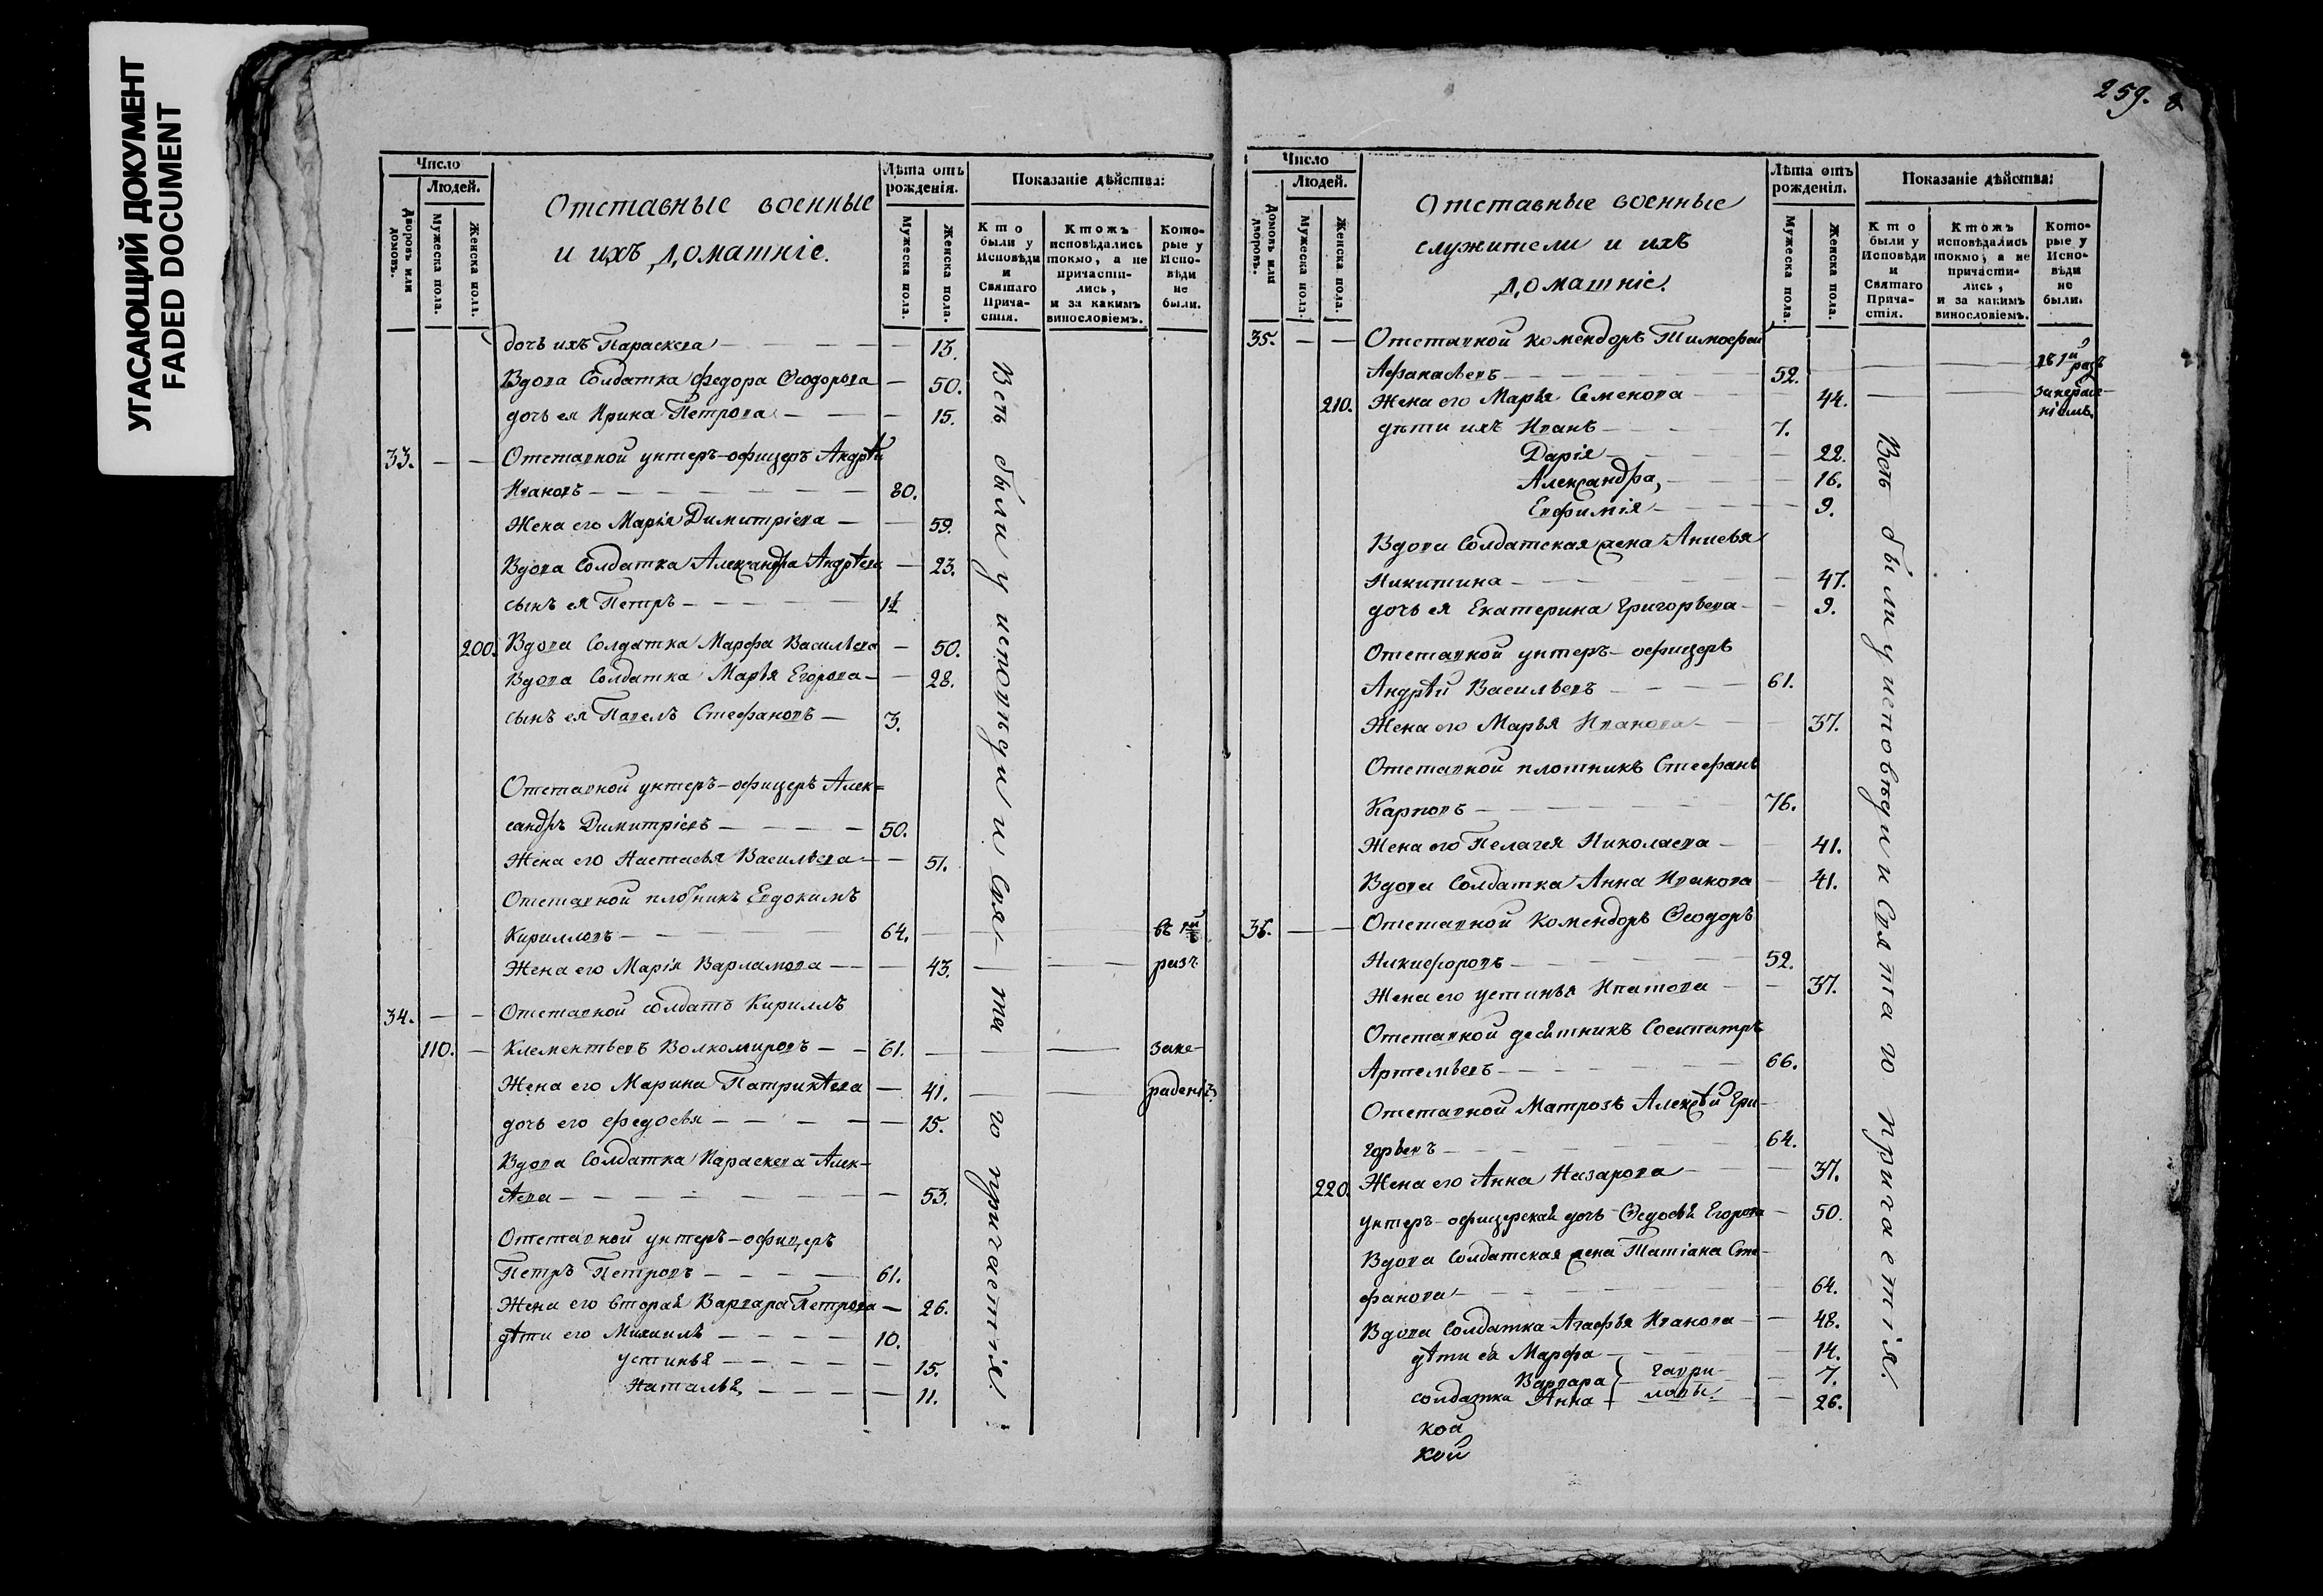 УГАСАЮЩИЙ ДОКУМЕНТ
FADED DOCUMENT
259.
Число
Людей.
Дворовъ или домовъ.
Мужеска пола.
Женска пола.
Отставные военные
и ихъ домашніе.
Лѣта отъ рожденія.
Мужеска пола.
Женска пола.
Показаніе дѣйства:
Кто были у Исповѣди и Святаго Причастія.
Ктожъ исповѣдались токмо, а не причастились, и за какимъ винословіемъ.
Которые у Исповѣди не были.
дочь ихъ Параскева — — — 13.
Вдова Солдатка Федора Ѳеодорова — 50.
дочь ея Ирина Петрова — — — 15.
33. — — Отставной унтеръ-офицеръ Андрѣй
Ивановъ — — — — — — 80.
Жена его Марія Димитріева — — 59.
Вдова Солдатка Александра Андрѣева — 23.
сынъ ея Петръ — — — — 1½
200. Вдова Солдатка Марфа Васильева — 50.
Вдова Солдатка Марья Егорова — — 28.
сынъ ея Павелъ Стефановъ — 3.
Отставной унтеръ-офицеръ Алек=
сандръ Димитріевъ — — — — 50.
Жена его Настасья Васильева — — 51.
Отставной плотникъ Евдокимъ
Кирилловъ — — — — 64. — — въ 1й
Жена его Марія Варламова — — — 43. — — — разъ
34. — — Отставной солдатъ Кириллъ
110. — Клементьевъ Волкомировъ — — 61. — — — зане-
Жена его Марина Патрикѣева — 41. — — раденіе
дочь его Федосья — — — — — 15.
Вдова Солдатка Параскева Алек-
ѣева — — — — — — — 53.
Отставной унтеръ-офицеръ
Петръ Петровъ — — — — 61.
Жена его вторая Варвара Петрова — 26.
дѣти его Михаилъ — — — — 10.
Устинья — — — — — 15.
Наталья, — — — — — 11.
Всѣ были у исповѣди и Свя- та го причастія.
Число
Людей.
Домовъ или дворовъ.
Мужеска пола.
Женска пола.
Отставные военные
служители и ихъ
домашніе.
Лѣта отъ рожденія.
Мужеска пола.
Женска пола.
Показаніе дѣйства:
Кто были у Исповѣди и Святаго Причастія.
Ктожъ исповѣдались токмо, а не причастились, и за какимъ винословіемъ.
Которые у Исповѣди не были.
35. — — Отставной комендоръ Тимофей
Афанасьевъ — — — — 52. — — въ 1й разъ
210. Жена его Марья Семенова — — 44. — — занераде-
ніемъ.
дѣти ихъ Иванъ — — — — 7.
Дарія — — — — — 22.
Александра, — — — — 16.
Евфимія — — — — 9.
Вдова Солдатская жена Анисья
Никитина — — — — — 47.
дочь ея Екатерина Григорьева — — 9.
Отставной унтеръ-офицеръ
Андрѣй Васильевъ — — — — 61.
Жена его Марья Иванова — — — 37.
Отставной плотникъ Стефанъ
Карповъ — — — — — — 76.
Жена его Пелагея Николаева — — 41.
Вдова Солдатка Анна Иванова — 41.
36. — — Отставной Комендоръ Ѳеодоръ
Никифоровъ — — — — — 52.
Жена его Устинья Ипатова — — 37.
Отставной десятникъ Сосипатръ
Артемьевъ — — — — — 66.
Отставной Матрозъ Алексѣй Гри-
горьевъ — — — — — 64.
220. Жена его Анна Назарова — — — 37.
Унтеръ-офицерская дочь Ѳедосья Егорова — 50.
Вдова Солдатская жена Татіана Сте-
фанова — — — — — — 64.
Вдова Солдатка Агафья Иванова — — 48.
дѣти ея Марфа — — — — 14.
Варвара — Гаври- — 7.
солдатка Анна — ловы. — 26.
коа
кой
Всѣ были у исповѣди и Свята го причастія.